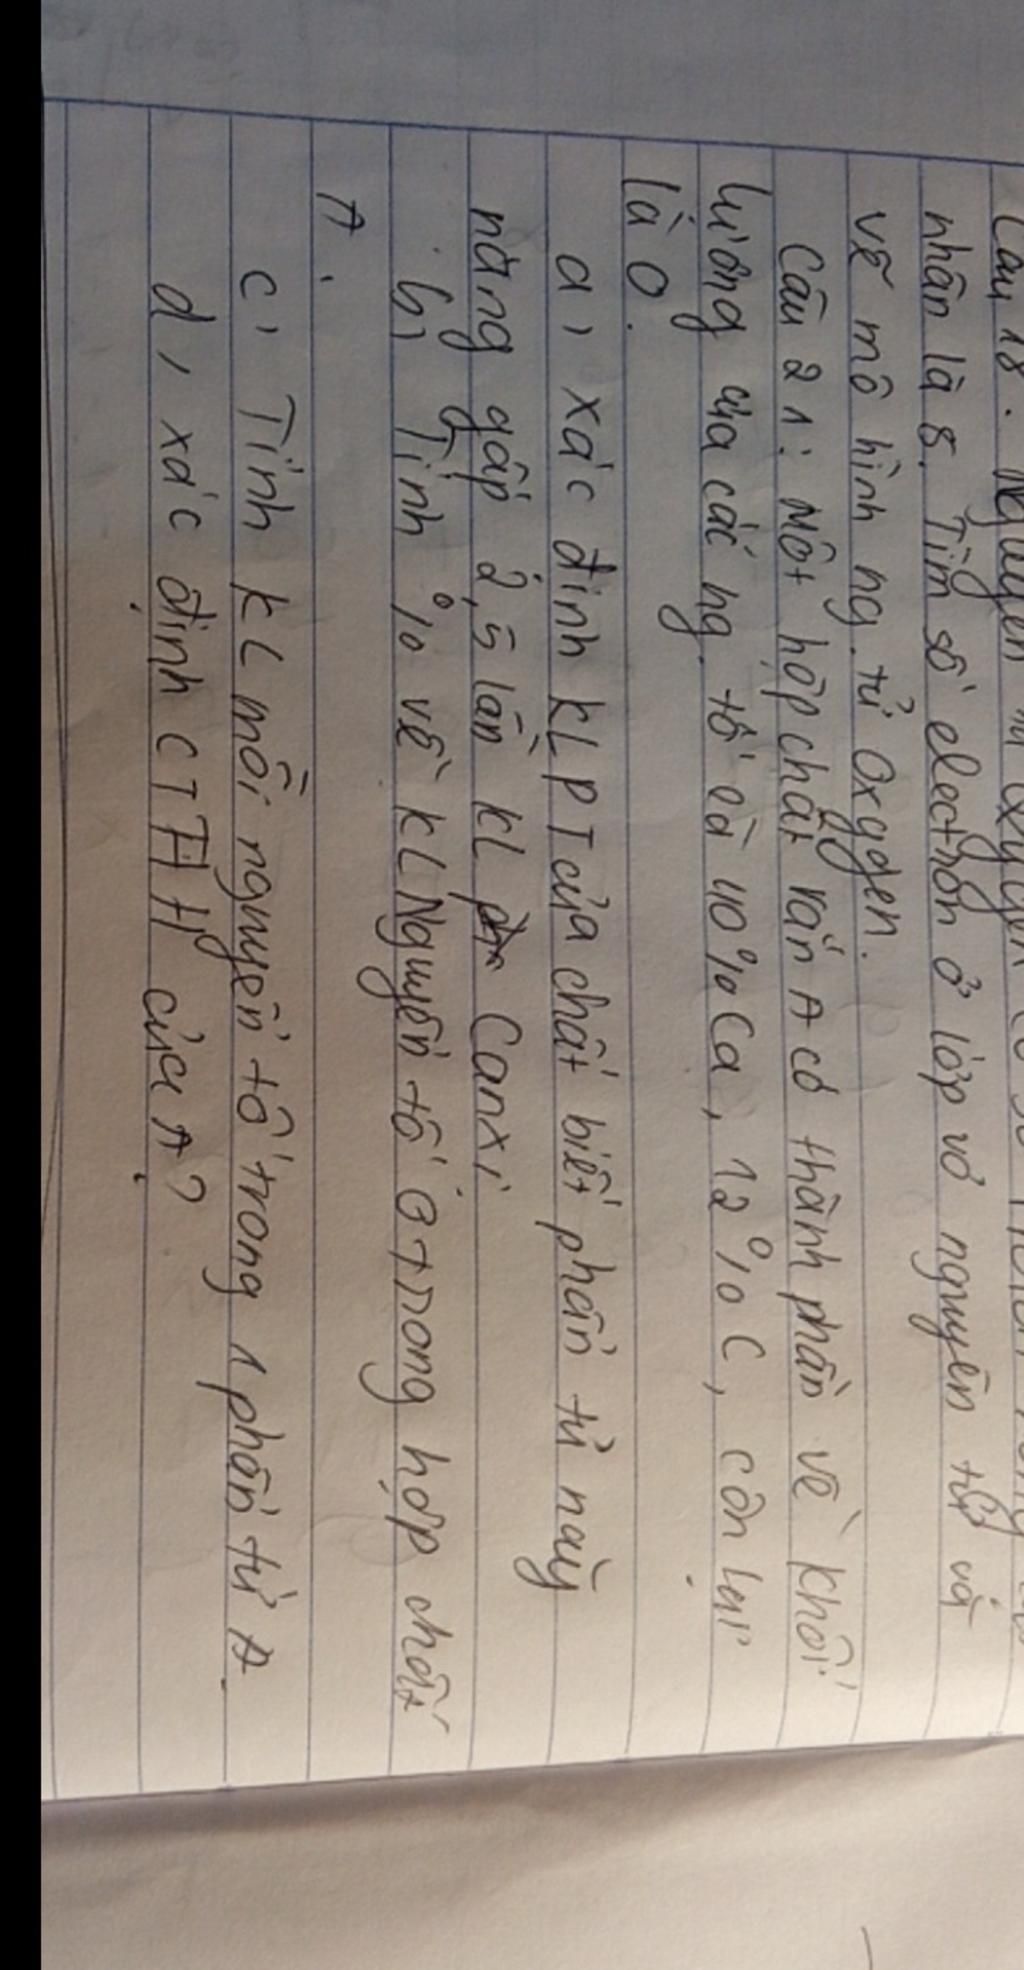 Câu 18. Nguyên
nhân là 8. Tìm số electhon ở lớp vỏ nguyên tử và
vẽ mô hình ng. tử Oxygen.
Câu 21: Một hợp chất rắn A có thành phần về khối
lượng của các ng. tố là 40% Ca, 12% C, còn lại
là O.
a, xác định KLPT của chất biết phân tử này
nặng gấp 2,5 lần KL Canxi
b, Tính % về KL Nguyên tố O trong hợp chất
A.
c, Tính KL mỗi nguyên tố trong 1 phân tử A.
d, xác định CTHH của A?